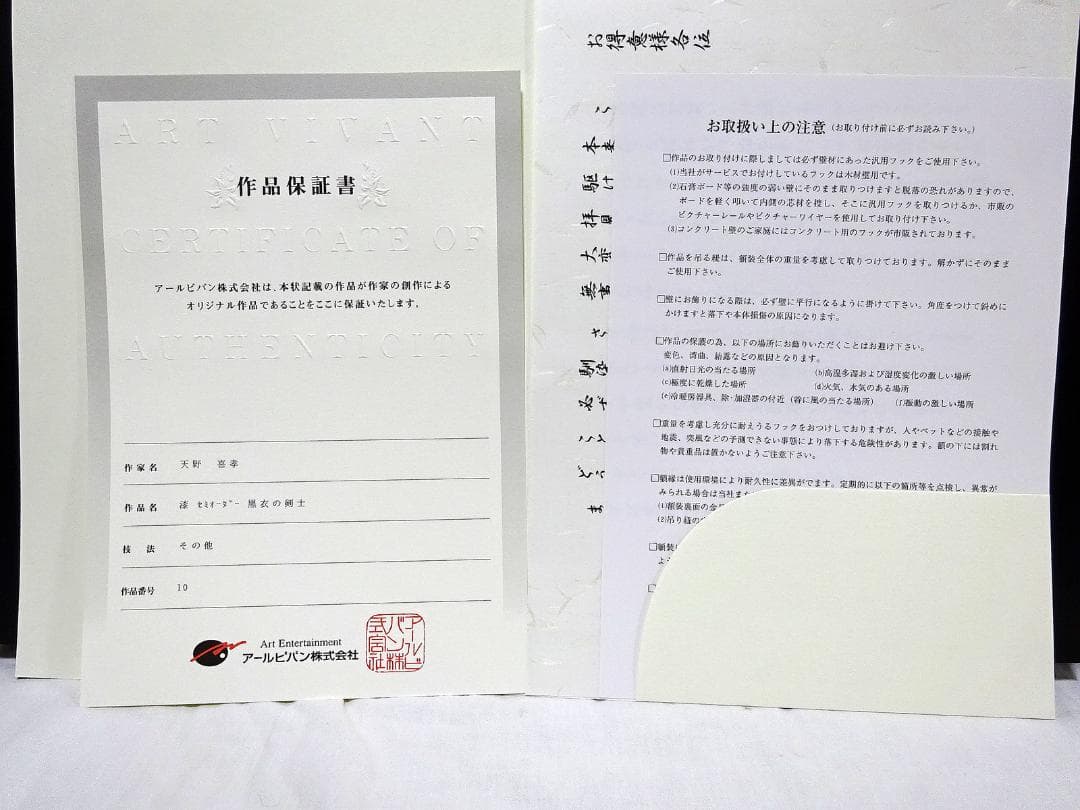 ART VIVANT
作品保証書
CERTIFICATE OF
アールビバン株式会社は、本状記載の作品が作家の創作による
オリジナル作品であることをここに保証いたします。
AUTHENTICITY
作家名 天野 喜孝
作品名 漆 ｾﾐｵｰﾀﾞｰ 黒衣の剣士
技 法 その他
作品番号 10
Art Entertainment
アールビバン株式会社
アールビバン株式会社
お得意様各位
お取扱い上の注意（お取り付け前に必ずお読み下さい。）
□作品のお取り付けに際しましては必ず壁材にあった汎用フックをご使用下さい。
(1)当社がサービスでお付けしているフックは木材壁用です。
(2)石膏ボード等の強度の弱い壁にそのまま取りつけますと脱落の恐れがありますので、
ボードを軽く叩いて内側の芯材を捜し、そこに汎用フックを取りつけるか、市販の
ピクチャーレールやピクチャーワイヤーを使用してお取り付け下さい。
(3)コンクリート壁のご家庭にはコンクリート用のフックが市販されております。
□作品を吊る紐は、額装全体の重量を考慮して取りつけております。解かずにそのまま
ご使用下さい。
□壁にお飾りになる際は、必ず壁に平行になるように掛けて下さい。角度をつけて斜めに
かけますと落下や本体損傷の原因になります。
□作品の保護の為、以下の場所にお飾りいただくことはお避け下さい。
変色、湾曲、結露などの原因となります。
(a)直射日光の当たる場所 (b)高温多湿および湿度変化の激しい場所
(c)極度に乾燥した場所 (d)火気、水気のある場所
(e)冷暖房器具、除・加湿器の付近（特に風の当たる場所） (f)振動の激しい場所
□重量を考慮し充分に耐えうるフックをおつけしておりますが、人やペットなどの接触や
地震、突風などの予測できない事態により落下する危険性があります。額の下には割れ
物や貴重品は置かないようご注意下さい。
□額縁は使用環境により耐久性に差異がでます。定期的に以下の箇所等を点検し、異常が
みられる場合は当社また
(1)額装裏面の金
(2)吊り紐の
□額装
よう